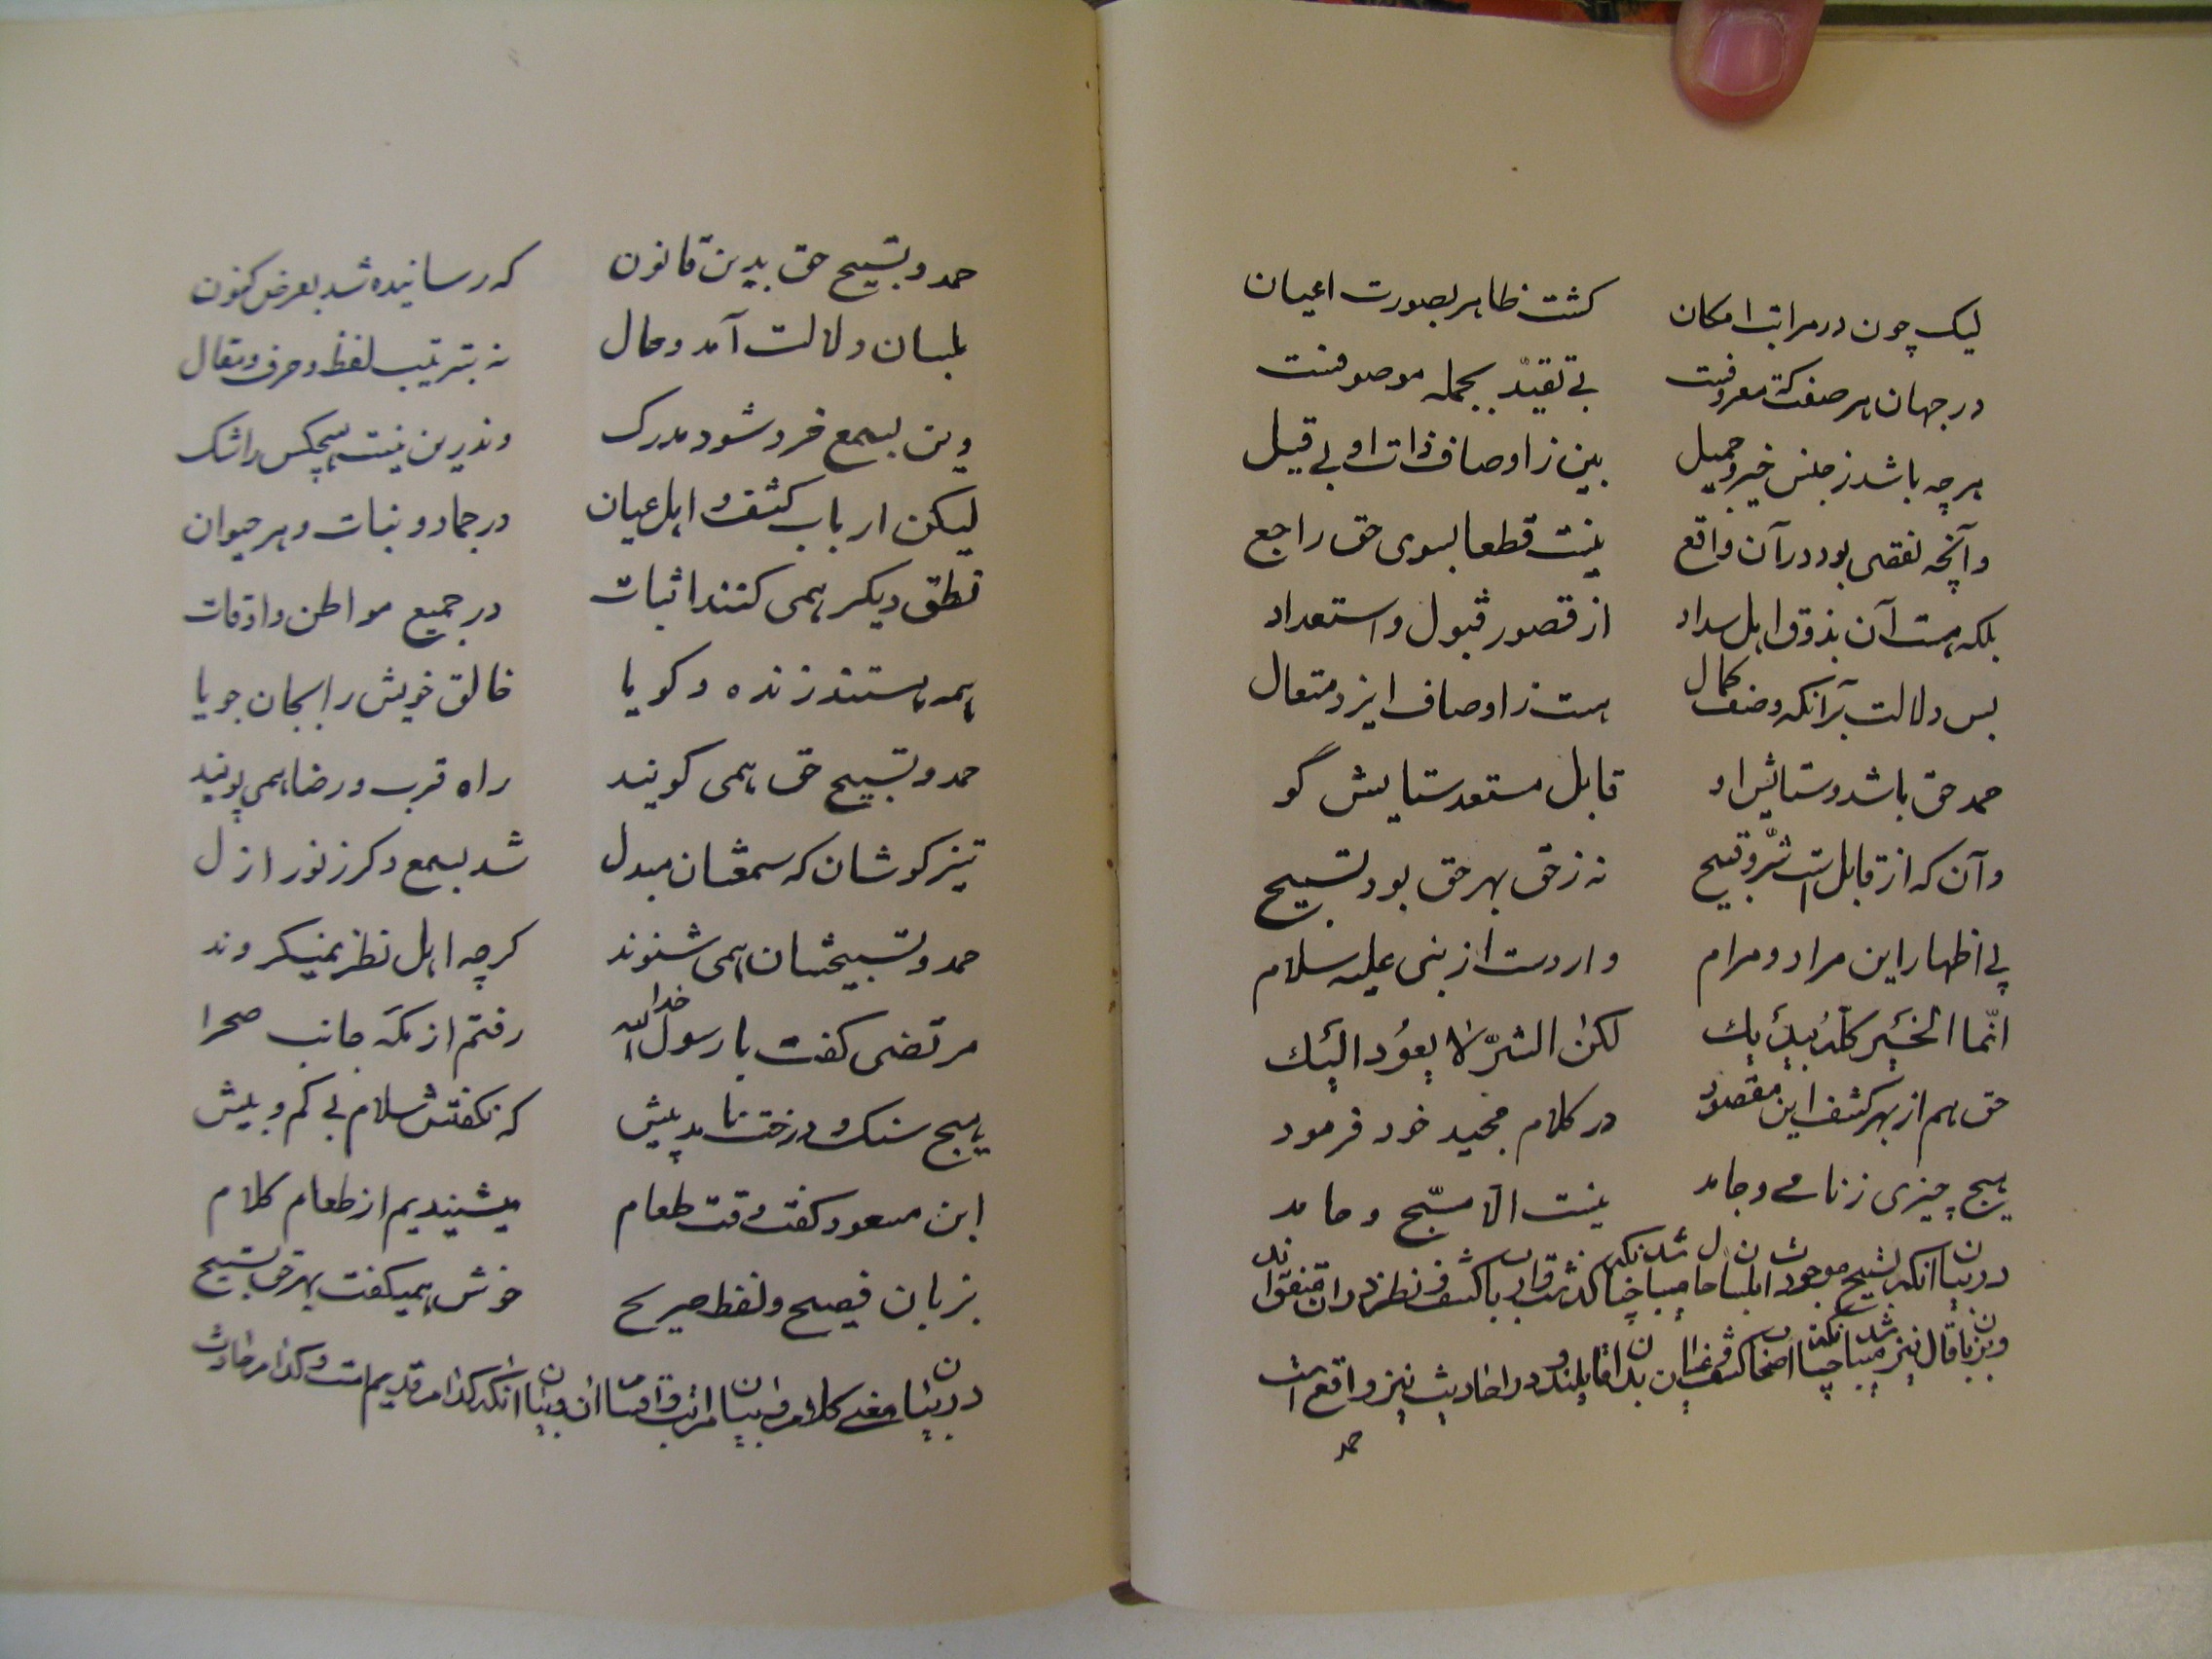 لیک چون در مراتب امکان کشت ظاهر بصورت اعیان
در جهان هر صفت که معروفست بی تقید بجمله موصوفست
هر چه باشد ز جنس خیر و جمیل بین ز اوصاف ذات او بی قیل
و آنچه نقصی بود در آن واقع نیست قطعا بسوی حق راجع
بلکه هست آن بذوق اهل سداد از قصور قبول و استعداد
بس دلالت بر آنکه وصف کمال هست ز اوصاف ایزد متعال
حمد حق باشد و ستایش او قابل مستعد ستایش گو
و آن که از قابل است شر و قبیح نه ز حق بهر حق بود تسبیح
پی اظهار این مراد و مرام واردست از نبی علیه سلام
انّما الخیر کلّه بیدیك لکن الشرّ لا یعود الیك
حق هم از بهر کشف این مقصود در کلام مجید خود فرمود
هیچ چیزی ز نامی و جامد نیست الا مسبّح و حامد
در بیان آنکه تسبیح موجودات بلسان حال میباشد چنانکه گذشت و ارباب کشف و نظر در آن متفق اند
و بزبان قال نیز میباشد چنانکه اصحاب کشف و عیان بدان قایلند و در احادیث نیز واقع است
حمد
حمد و تسبیح حق بدین قانون که رسانیده شد بعرض کنون
بلسان دلالت آمد و حال نه بترتیب لفظ و حرف و مقال
وین بسمع خرد شود مدرک وندرین نیست هیچکس را شک
لیکن ارباب کشف و اهل عیان در جماد و نبات و هر حیوان
نطق دیکر همی کنند اثبات در جمیع مواطن و اوقات
همه هستند زنده و کویا خالق خویش را بجان جویا
حمد و تسبیح حق همی کویند راه قرب و رضا همی پویند
تیز کوشان که سمعشان مبدل شد بسمع دکر ز نور ازل
حمد و تسبیحشان همی شنوند کرچه اهل نظر نمیکروند
مرتضی کفت با رسول خدا رفتم از مکه جانب صحرا
هیچ سنک و درخت نامد پیش که نکفتش سلام بی کم و بیش
ابن مسعود کفت وقت طعام میشنیدیم از طعام کلام
بزبان فصیح و لفظ صریح خوش همیکفت بهر حق تسبیح
در بیان معنی کلام و بیان مراتب و اقسام آن و بیان آنکه کدام قدیم است و کدام حادث